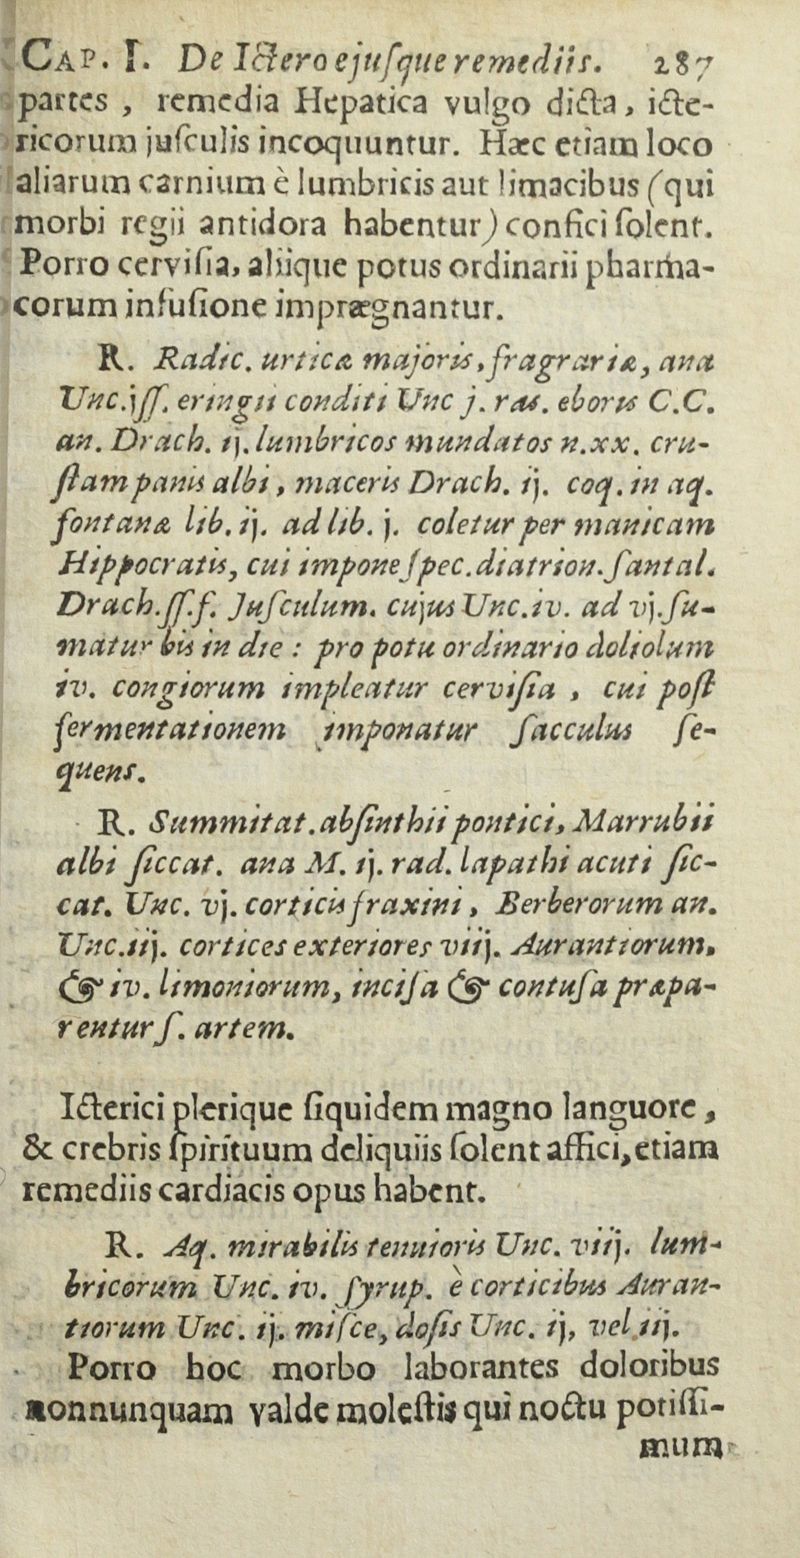 CAP. I. De Ictero ejuſque remediis. 287
partes, remedia Hepatica vulgo dicta, icte-
ricorum juſculis incoquuntur. Hæc etiam loco
aliarum carnium è lumbricis aut limacibus (qui
morbi regii antidora habentur) confici ſolent.
Porro cerviſia, aliique potus ordinarii pharma-
corum infuſione imprægnantur.
R. Radic. urticæ majoris, fragrariæ, ana
Unc.jſſ. eringii conditi Unc j. ras. eboris C.C.
an. Drach. ij. lumbricos mundatos n.xx. cru-
ſtam panis albi, maceris Drach. ij. coq. in aq.
fontanæ lib. ij. ad lib. j. coletur per manicam
Hippocratis, cui impone ſpec. diatrion. ſantal.
Drach.ſſ.f. Juſculum. cujus Unc.iv. ad vj. ſu-
matur bis in die : pro potu ordinario doliolum
iv. congiorum impleatur cerviſia , cui poſt
fermentationem imponatur ſacculus ſe-
quens.
R. Summitat. abſinthii pontici, Marrubii
albi ſiccat. ana M. ij. rad. lapathi acuti ſic-
cat. Unc. vj. corticis fraxini, Berberorum an.
Unc.iij. cortices exteriores viij. Aurantiorum,
& iv. limoniorum, inciſa & contuſa præpa-
rentur ſ. artem.
Icterici plerique ſiquidem magno languore,
& crebris ſpirituum deliquiis ſolent affici, etiam
remediis cardiacis opus habent.
R. Aq. mirabilis tenuioris Unc. viij. lum-
bricorum Unc. iv. ſyrup. e corticibus Auran-
tiorum Unc. ij. miſce, doſis Unc. ij, vel iij.
Porro hoc morbo laborantes doloribus
nonnunquam valde moleſtis qui noctu potiſſi-
mum